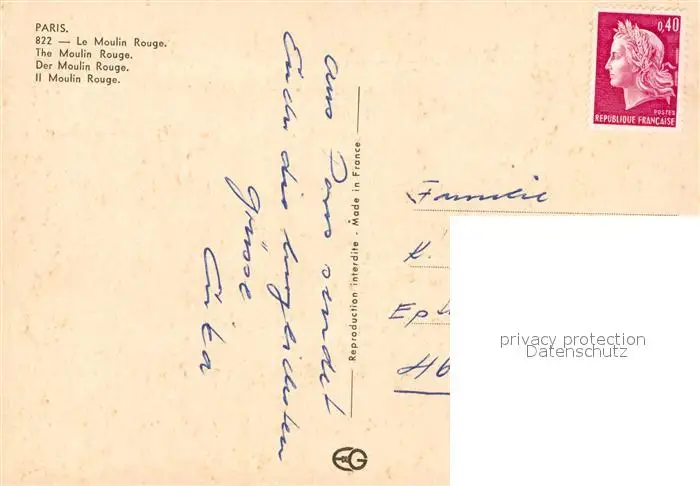 PARIS.
822 — Le Moulin Rouge.
The Moulin Rouge.
Der Moulin Rouge.
Il Moulin Rouge.
0,40
POSTES
REPUBLIQUE FRANÇAISE
Aus Paris sendet
Euch die herzlichsten
Grüsse
Reproduction interdite - Made in France
Familie
K.
Ep
46
privacy protection
Datenschutz